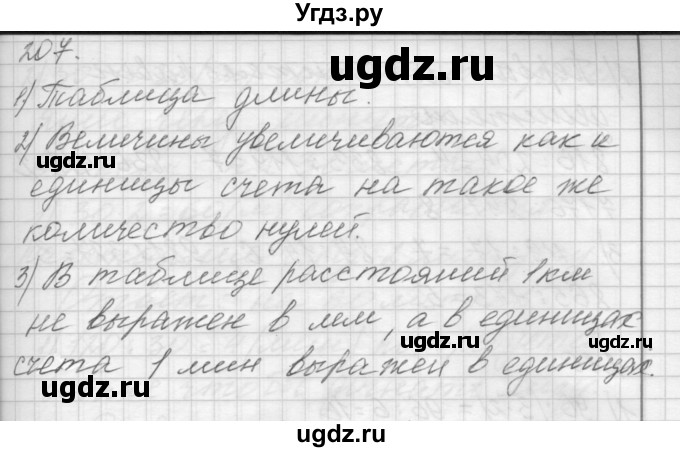 Угдз.ру
207.
ugdz.ru
1) Таблица длины.
2) Величины увеличиваются как и
ugdz.ru
ugdz.ru
единицы счета на такое же
количество нулей.
ugdz.ru
3) В таблице расстояний 1 км
не выражен в мм, а в единицах
ugdz.ru
ugdz.ru
счета 1 млн выражен в единицах.
ugdz.ru
ugdz.ru
ugdz.ru